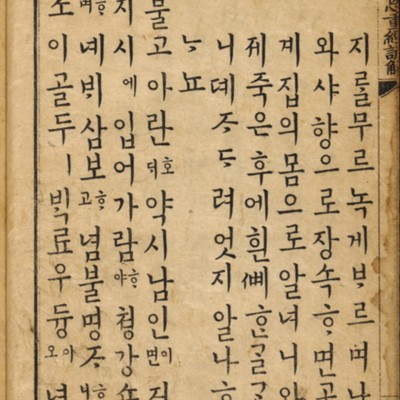 重經諺解
지를무르녹게ᄇᆞ르며
와샤향으로장속ᄒᆞ면
계집의몸으로알녀니와
죽은후에흰ᄲᅧᄒᆞᆫ골
니뎨ᄌᆞᄃᆞ려엇지알나ᄒᆞ
ᄂᆞ뇨
불고아란약시남인이면
지시에입어가람ᄒᆞ야쳥강
ᄒᆞ며녜ᄇᆡ삼보ᄒᆞ고념불명ᄌᆞᄒᆞ
이골두ㅣᄇᆡᆨ료우듕아오녀